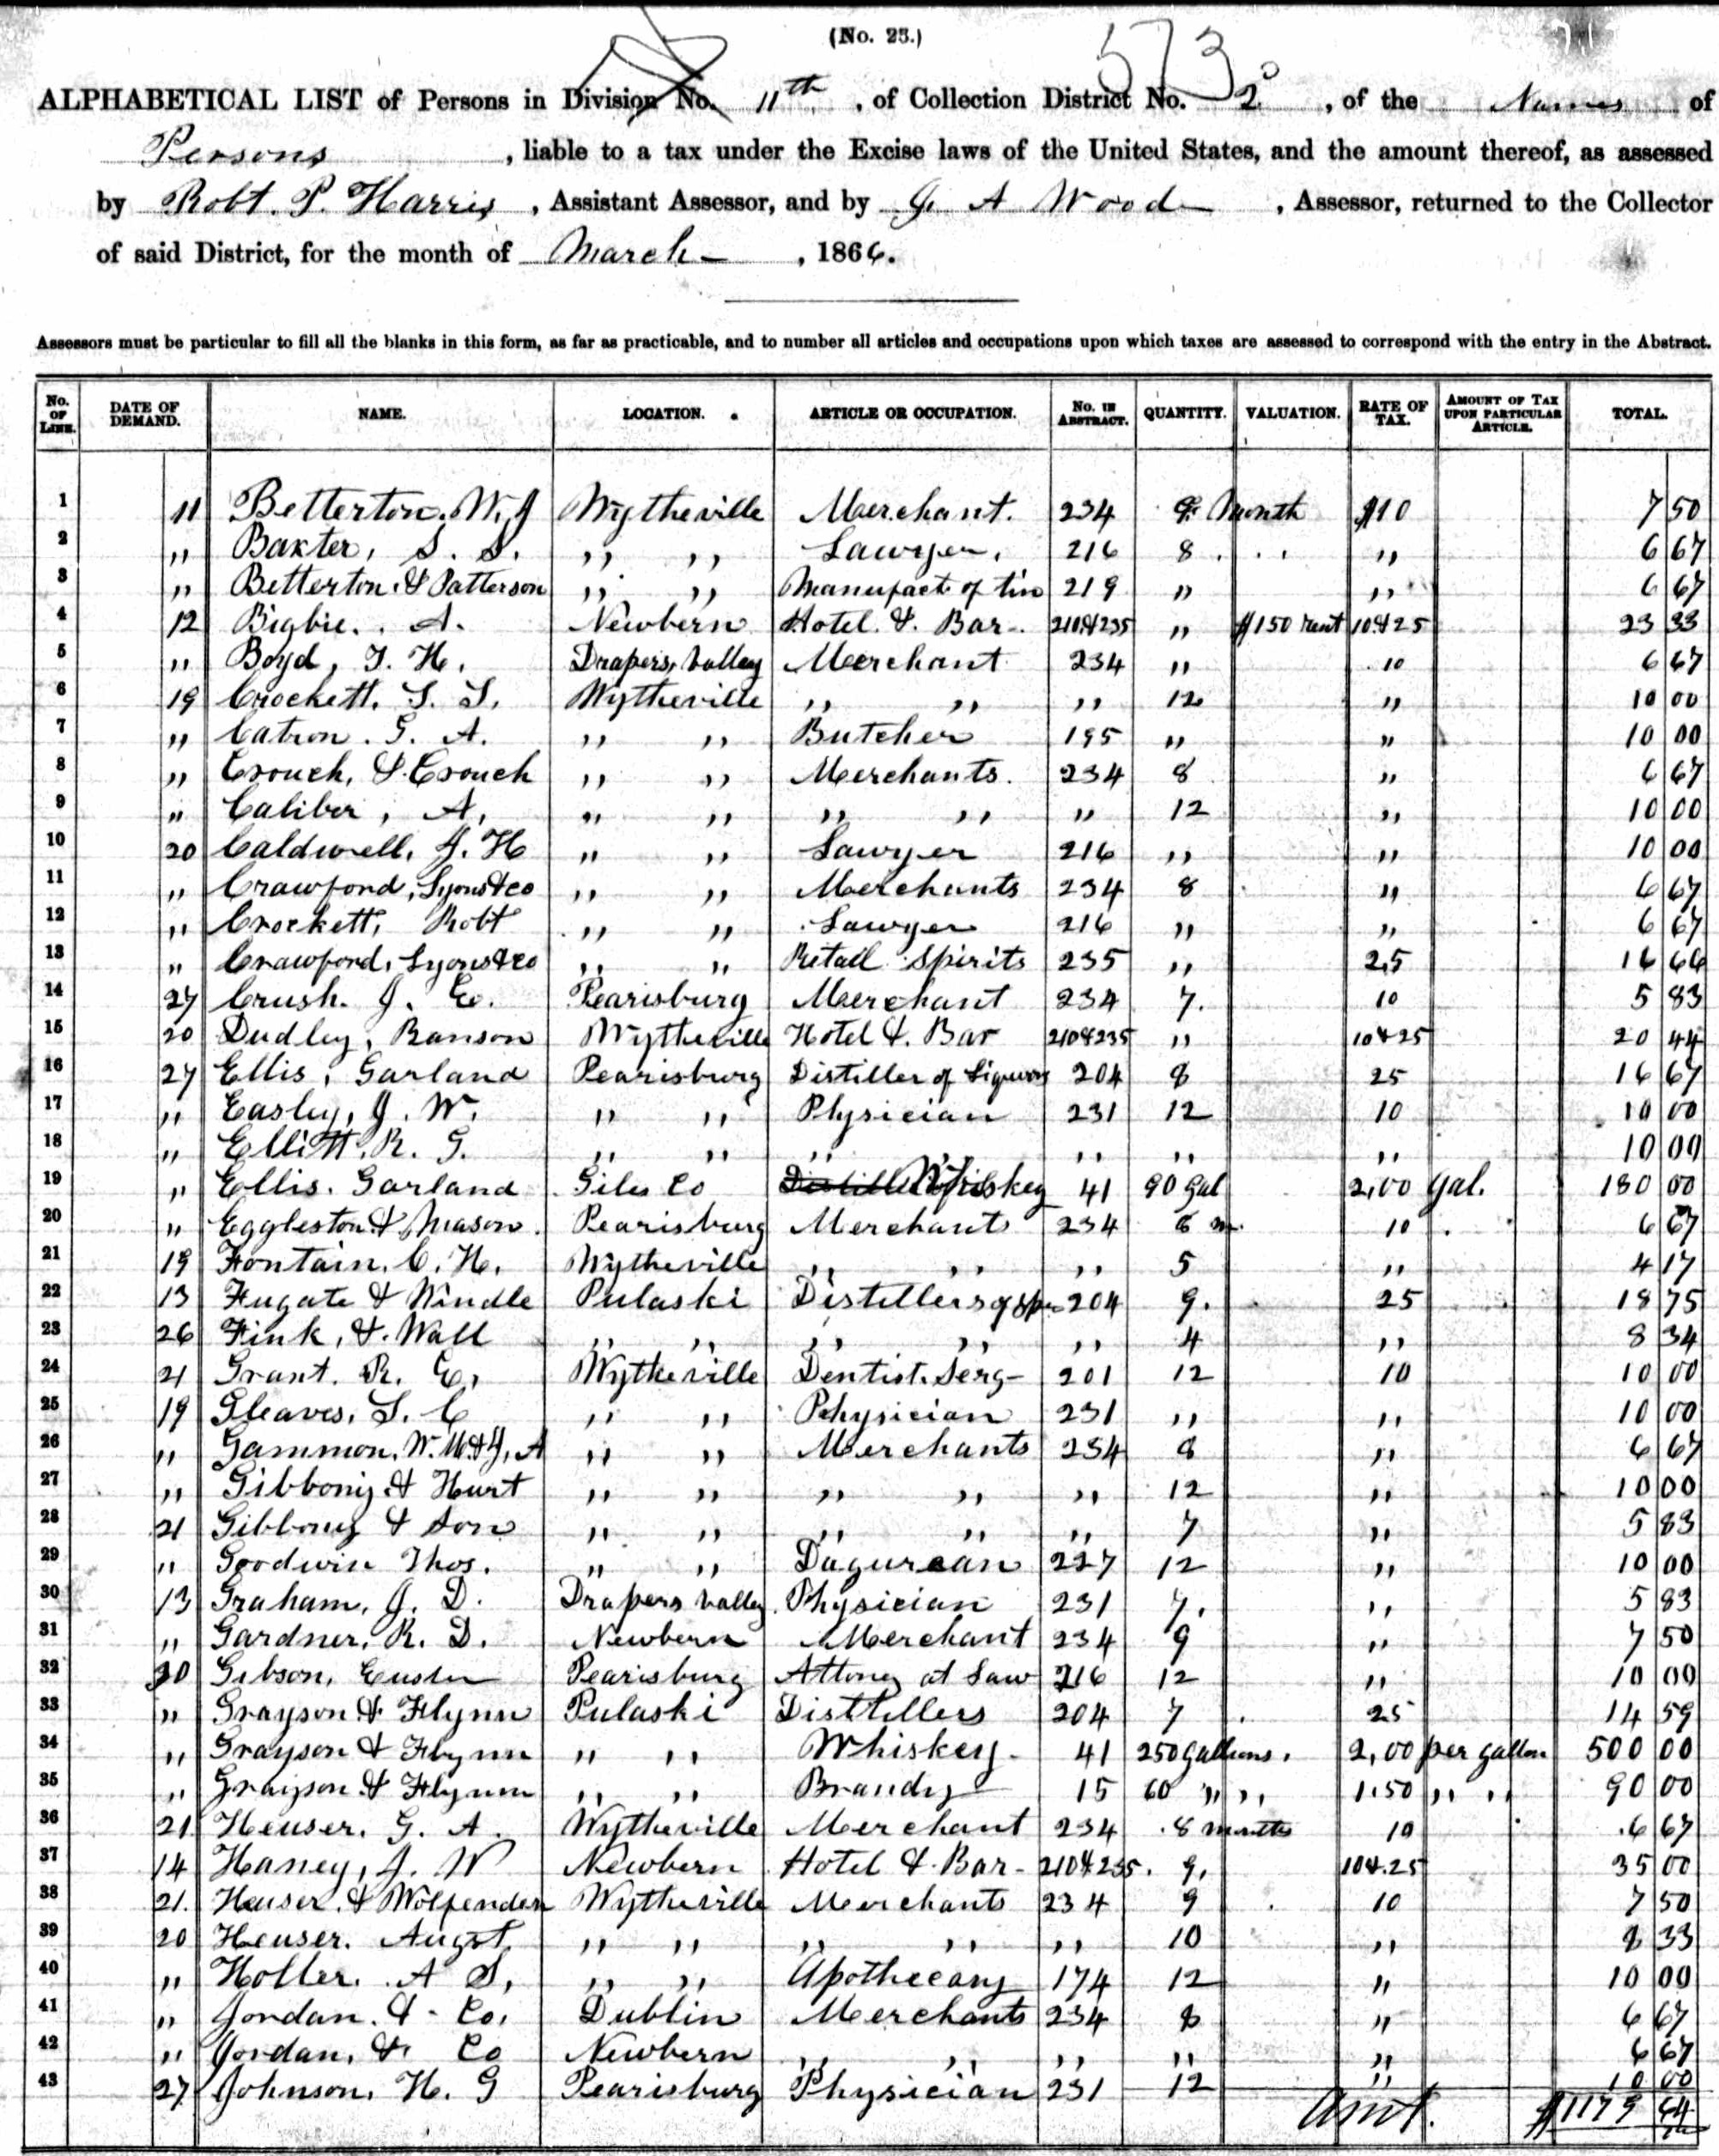 (No. 25.)
573
ALPHABETICAL LIST of Persons in Division No. 11th, of Collection District No. 2, of the Names of
Persons, liable to a tax under the Excise laws of the United States, and the amount thereof, as assessed
by Robt. P. Harris, Assistant Assessor, and by J. A Wood, Assessor, returned to the Collector
of said District, for the month of March, 1866.
Assessors must be particular to fill all the blanks in this form, as far as practicable, and to number all articles and occupations upon which taxes are assessed to correspond with the entry in the Abstract.
No. OF LINE. DATE OF DEMAND. NAME. LOCATION. ARTICLE OR OCCUPATION. No. IN ABSTRACT. QUANTITY. VALUATION. RATE OF TAX. AMOUNT OF TAX UPON PARTICULAR ARTICLE. TOTAL.
1 11 Betterton, W. J Wytheville Merchant. 234 9 Month $10 7 50
2 " Baxter, S. S. " " Lawyer, 216 8 " 6 67
3 " Betterton & Patterson " " Manufact of tin 219 " " 6 67
4 12 Bigbie. A. Newbern Hotel & Bar 210&235 " $150 rent 10&25 23 33
5 " Boyd, T. H. Drapers Valley Merchant 234 " 10 6 67
6 19 Crockett, S. S. Wytheville " " " 12 " 10 00
7 " Catron. G. A. " " Butcher 195 " " 10 00
8 " Crouch, & Crouch " " Merchants. 234 8 " 6 67
9 " Caliber, A, " " " " " 12 " 10 00
10 20 Caldwell, J. H " " Lawyer 216 " " 10 00
11 " Crawford, Lyons & co " " Merchants 234 8 " 6 67
12 " Crockett, Robt " " Lawyer 216 " " 6 67
13 " Crawford, Lyons & co " " Retail Spirits 235 " 25 16 66
14 27 Crush. J. E. Pearisburg Merchant 234 7. 10 5 83
15 20 Dudley, Ranson Wytheville Hotel & Bar 210&235 " 10&25 20 44
16 27 Ellis, Garland Pearisburg Distiller of Liquors 204 8 25 16 67
17 " Easley, J. W. " " Physician 231 12 10 10 00
18 " Elliott, R. G. " " " " " " 10 00
19 " Ellis. Garland Giles Co Whiskey 41 90 gal 2,00 gal. 180 00
20 " Eggleston & Mason. Pearisburg Merchants 234 8 m. 10 6 67
21 19 Fontain. C. H. Wytheville " " " 5 " 4 17
22 13 Fugate & Windle Pulaski Distillers of Spr 204 9. 25 18 75
23 26 Fink, & Wall " " " " " 4 " 8 34
24 21 Grant. R. E, Wytheville Dentist. Serg- 201 12 10 10 00
25 19 Gleaves, S. C " " Physician 231 " " 10 00
26 " Gammon, W. M. & J, A " " Merchants 234 8 " 6 67
27 " Gibbony & Hurt " " " " " 12 " 10 00
28 21 Gibbony & Son " " " " " 7 " 5 83
29 " Goodwin Thos. " " Dagurean 227 12 " 10 00
30 13 Graham, J. D. Drapers Valley Physician 231 7. " 5 83
31 " Gardner, R. D. Newbern Merchant 234 9 " 7 50
32 20 Gibson, Pearisburg Attony at Law 216 12 " 10 00
33 " Grayson & Flynn Pulaski Disttillers 204 7 25 14 59
34 " Grayson & Flynn " " Whiskey 41 250 gallons. 2,00 per gallon 500 00
35 " Grayson & Flynn " " Brandy 15 60 " " 1.50 " " 90 00
36 21 Heuser. G. A. Wytheville Merchant 234 8 months 10 6 67
37 14 Haney, J. W Newbern Hotel & Bar 210&235. 9, 10&25 35 00
38 21. Heuser & Wolfenden Wytheville Merchants 234 9 10 7 50
39 20 Heuser. Augst " " " " " 10 " 8 33
40 " Holler. A S, " " Apothecary 174 12 " 10 00
41 " Jordan. & Co, Dublin Merchants 234 8 " 6 67
42 " Jordan, & Co Newbern " " " " " 6 67
43 27 Johnson, H. G Pearisburg Physician 231 12 " 10 00
Amt.